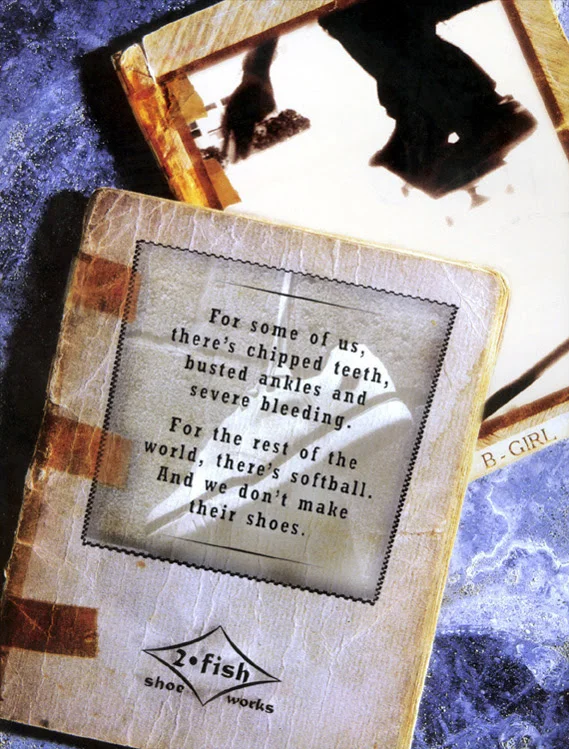 For some of us,
there's chipped teeth,
busted ankles and
severe bleeding.
For the rest of the
world, there's softball.
And we don't make
their shoes.
B-GIRL
2•fish
shoe works